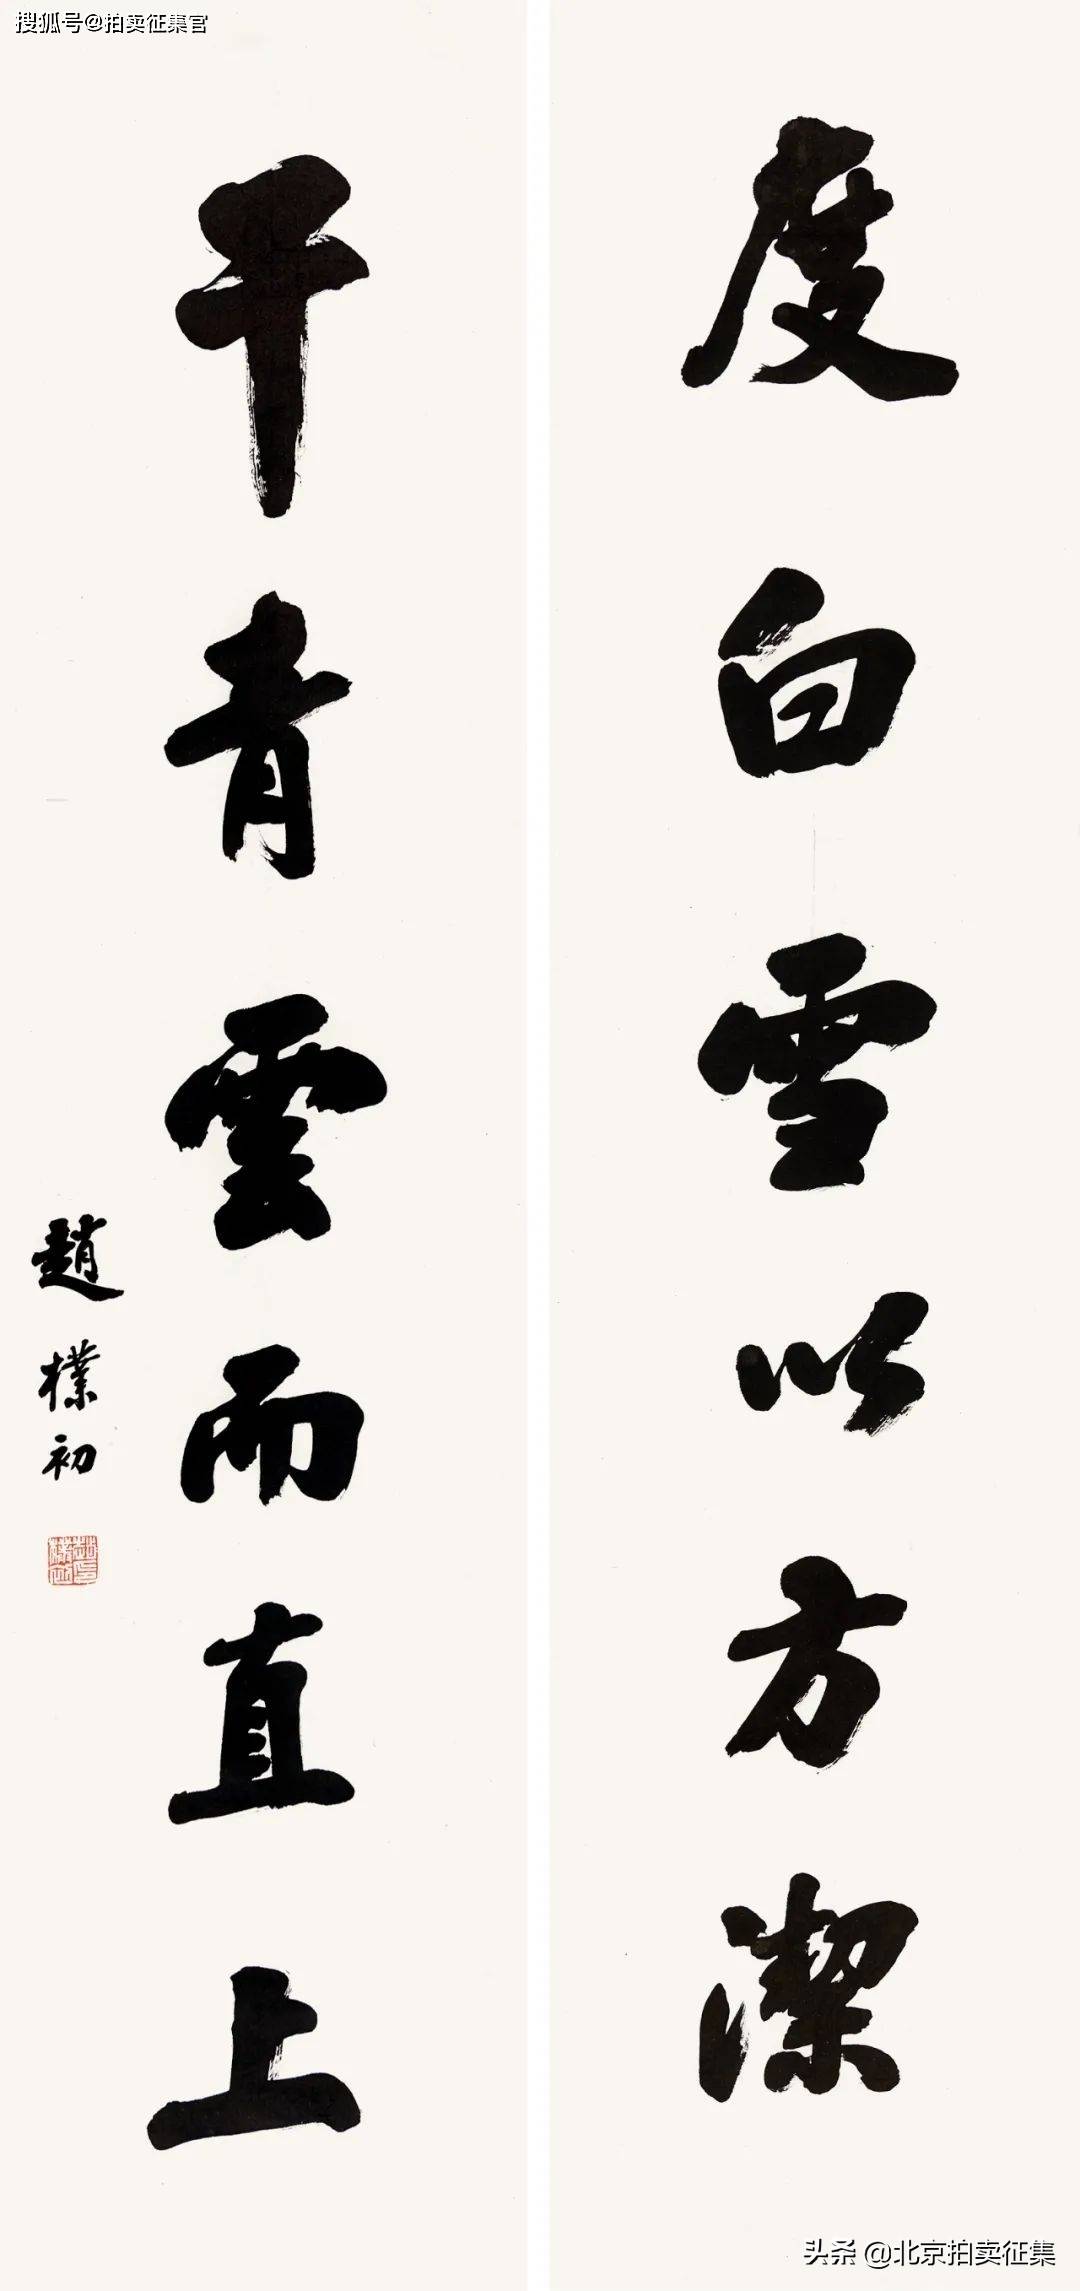 搜狐号@拍卖征集官
度白雪以方潔
干青雲而直上
趙樸初
头条 @北京拍卖征集